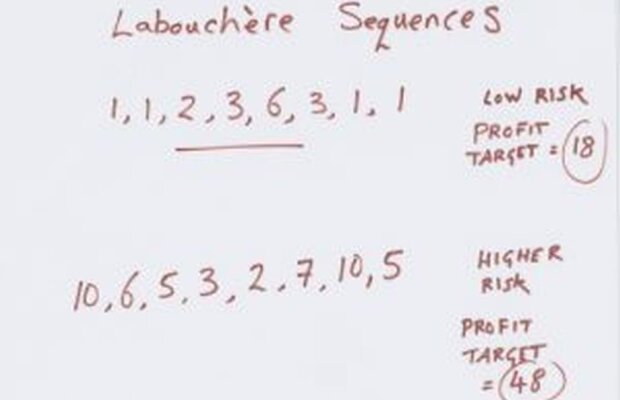 Labouchère Sequences
1, 1, 2, 3, 6, 3, 1, 1
LOW RISK
PROFIT
TARGET = 18
10, 6, 5, 3, 2, 7, 10, 5
HIGHER
RISK
PROFIT
TARGET
= 48